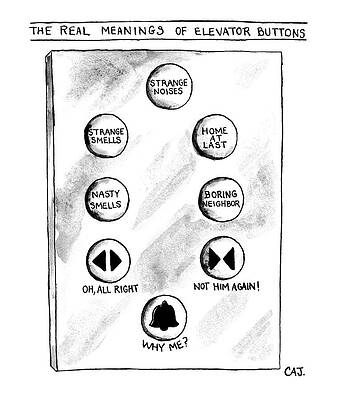 THE REAL MEANINGS OF ELEVATOR BUTTONS
STRANGE
NOISES
STRANGE
SMELLS
HOME
AT
LAST
NASTY
SMELLS
BORING
NEIGHBOR
OH, ALL RIGHT
NOT HIM AGAIN!
WHY ME?
CAJ.